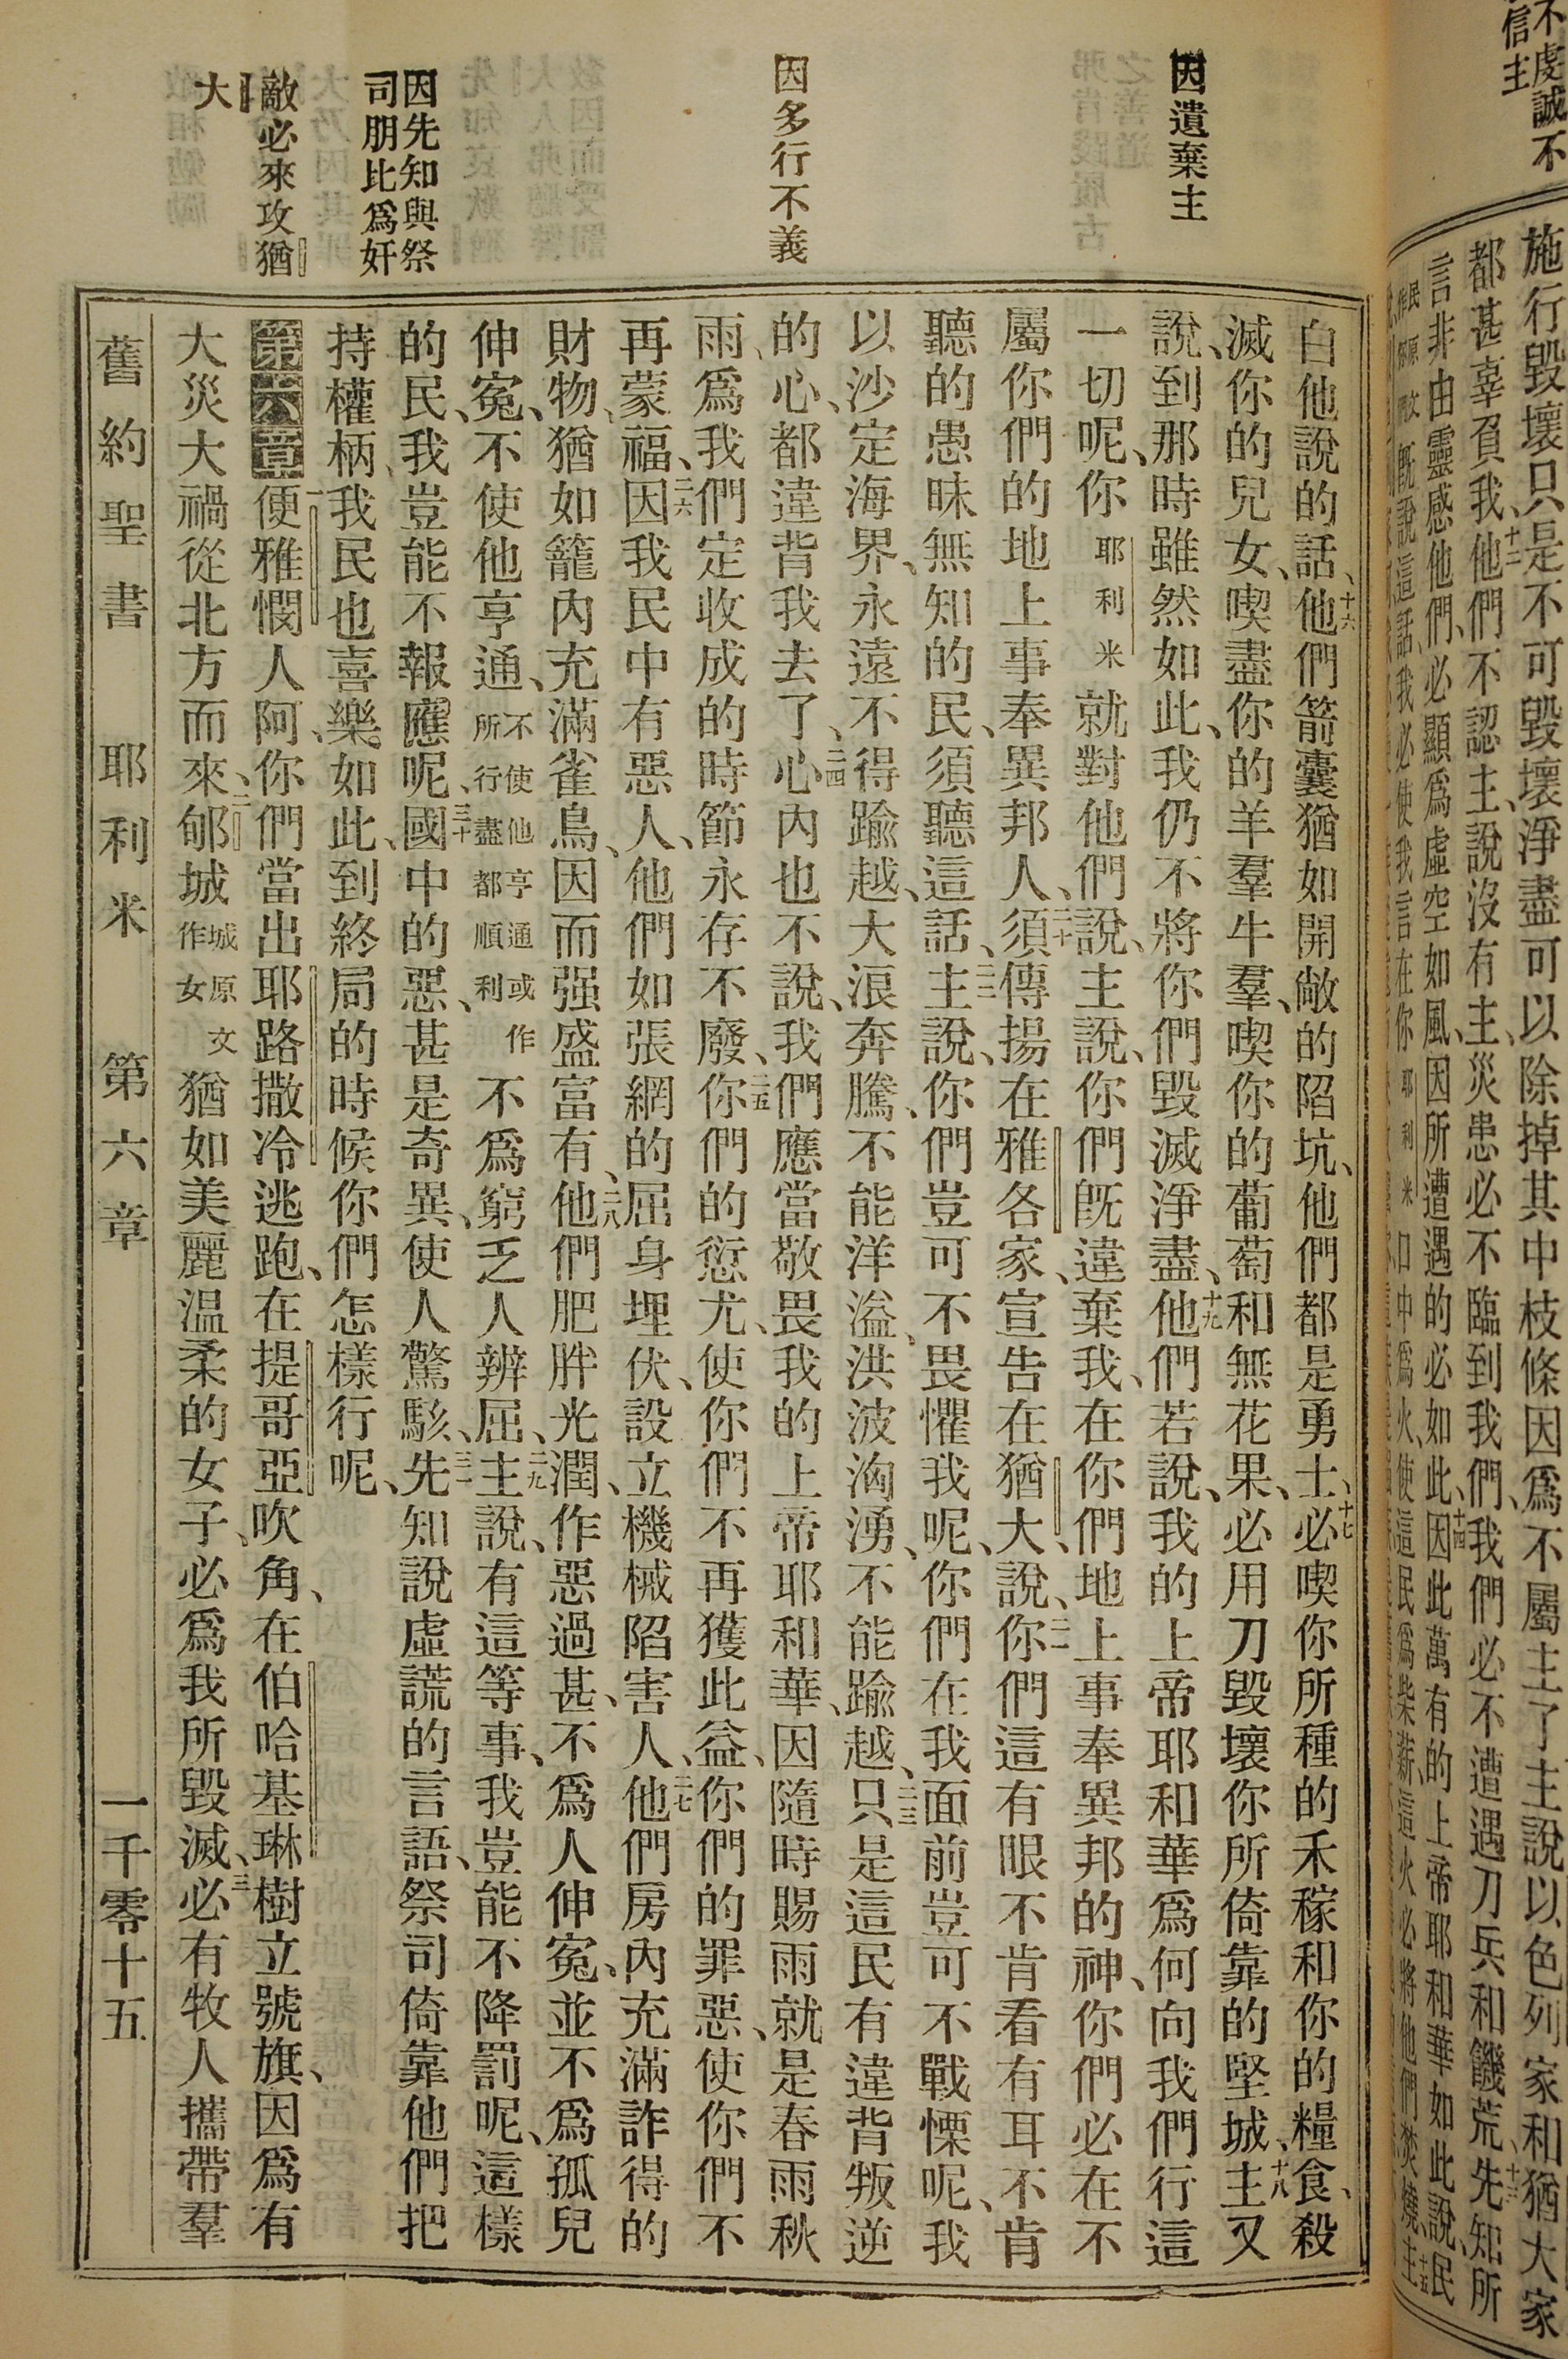 不虔誠不
信主
施行毀壞只是不可毀壞淨盡可以除掉其中枝條因爲不屬主了主說以色列家和猶大家
都甚辜負我、十二他們不認主、說沒有主、災患必不臨到我們、我們必不遭遇刀兵和饑荒、十三先知所
言非由靈感他們、必顯爲虛空如風、因所遭遇的必如此、十四因此萬有的上帝耶和華如此說、民
民原文
作你們
旣說這話、我必使我言在你耶利米口中爲火、使這民爲柴薪、這火必將他們焚燒、十五主
因遺棄主
因多行不義
因先知與祭
司朋比爲奸
敵必來攻猶
大
白他說的話、十六他們箭囊猶如開敞的陷坑、他們都是勇士、十七必喫你所種的禾稼和你的糧食、殺
滅你的兒女、喫盡你的羊羣牛羣、喫你的葡萄和無花果、必用刀毀壞你所倚靠的堅城、十八主又
說、到那時雖然如此、我仍不將你們毀滅淨盡、十九他們若說、我的上帝耶和華爲何向我們行這
一切呢、你耶利米就對他們說、主說、你們旣違棄我、在你們地上事奉異邦的神、你們必在不
屬你們的地上事奉異邦人、二十須傳揚在雅各家、宣告在猶大、說、二一你們這有眼不肯看有耳不肯
聽的愚昧無知的民、須聽這話、二二主說、你們豈可不畏懼我呢、你們在我面前豈可不戰慄呢、我
以沙定海界、永遠不得踰越、大浪奔騰、不能洋溢、洪波洶湧、不能踰越、二三只是這民有違背叛逆
的心、都違背我去了、二四心內也不說、我們應當敬畏我的上帝耶和華、因隨時賜雨就是春雨秋
雨、爲我們定收成的時節永存不廢、二五你們的愆尤、使你們不再獲此益、你們的罪惡、使你們不
再蒙福、二六因我民中有惡人、他們如張網的屈身埋伏、設立機械陷害人、二七他們房內充滿詐得的
財物、猶如籠內充滿雀鳥、因而强盛富有、二八他們肥胖光潤、作惡過甚、不爲人伸寃、並不爲孤兒
伸寃、不使他亨通、不使他亨通或作所行盡都順利不爲窮乏人辨屈、二九主說、有這等事、我豈能不降罰呢、這樣
的民、我豈能不報應呢、三十國中的惡、甚是奇異、使人驚駭、三一先知說虛謊的言語、祭司倚靠他們把
持權柄、我民也喜樂如此、到終局的時候你們怎樣行呢、
第六章 一便雅憫人阿、你們當出耶路撒冷逃跑、在提哥亞吹角、在伯哈基琳樹立號旗、因爲有
大災大禍從北方而來、二郇城城原文作女猶如美麗温柔的女子、必爲我所毀滅、三必有牧人攜帶羣
舊約聖書 耶利米 第六章 一千零十五